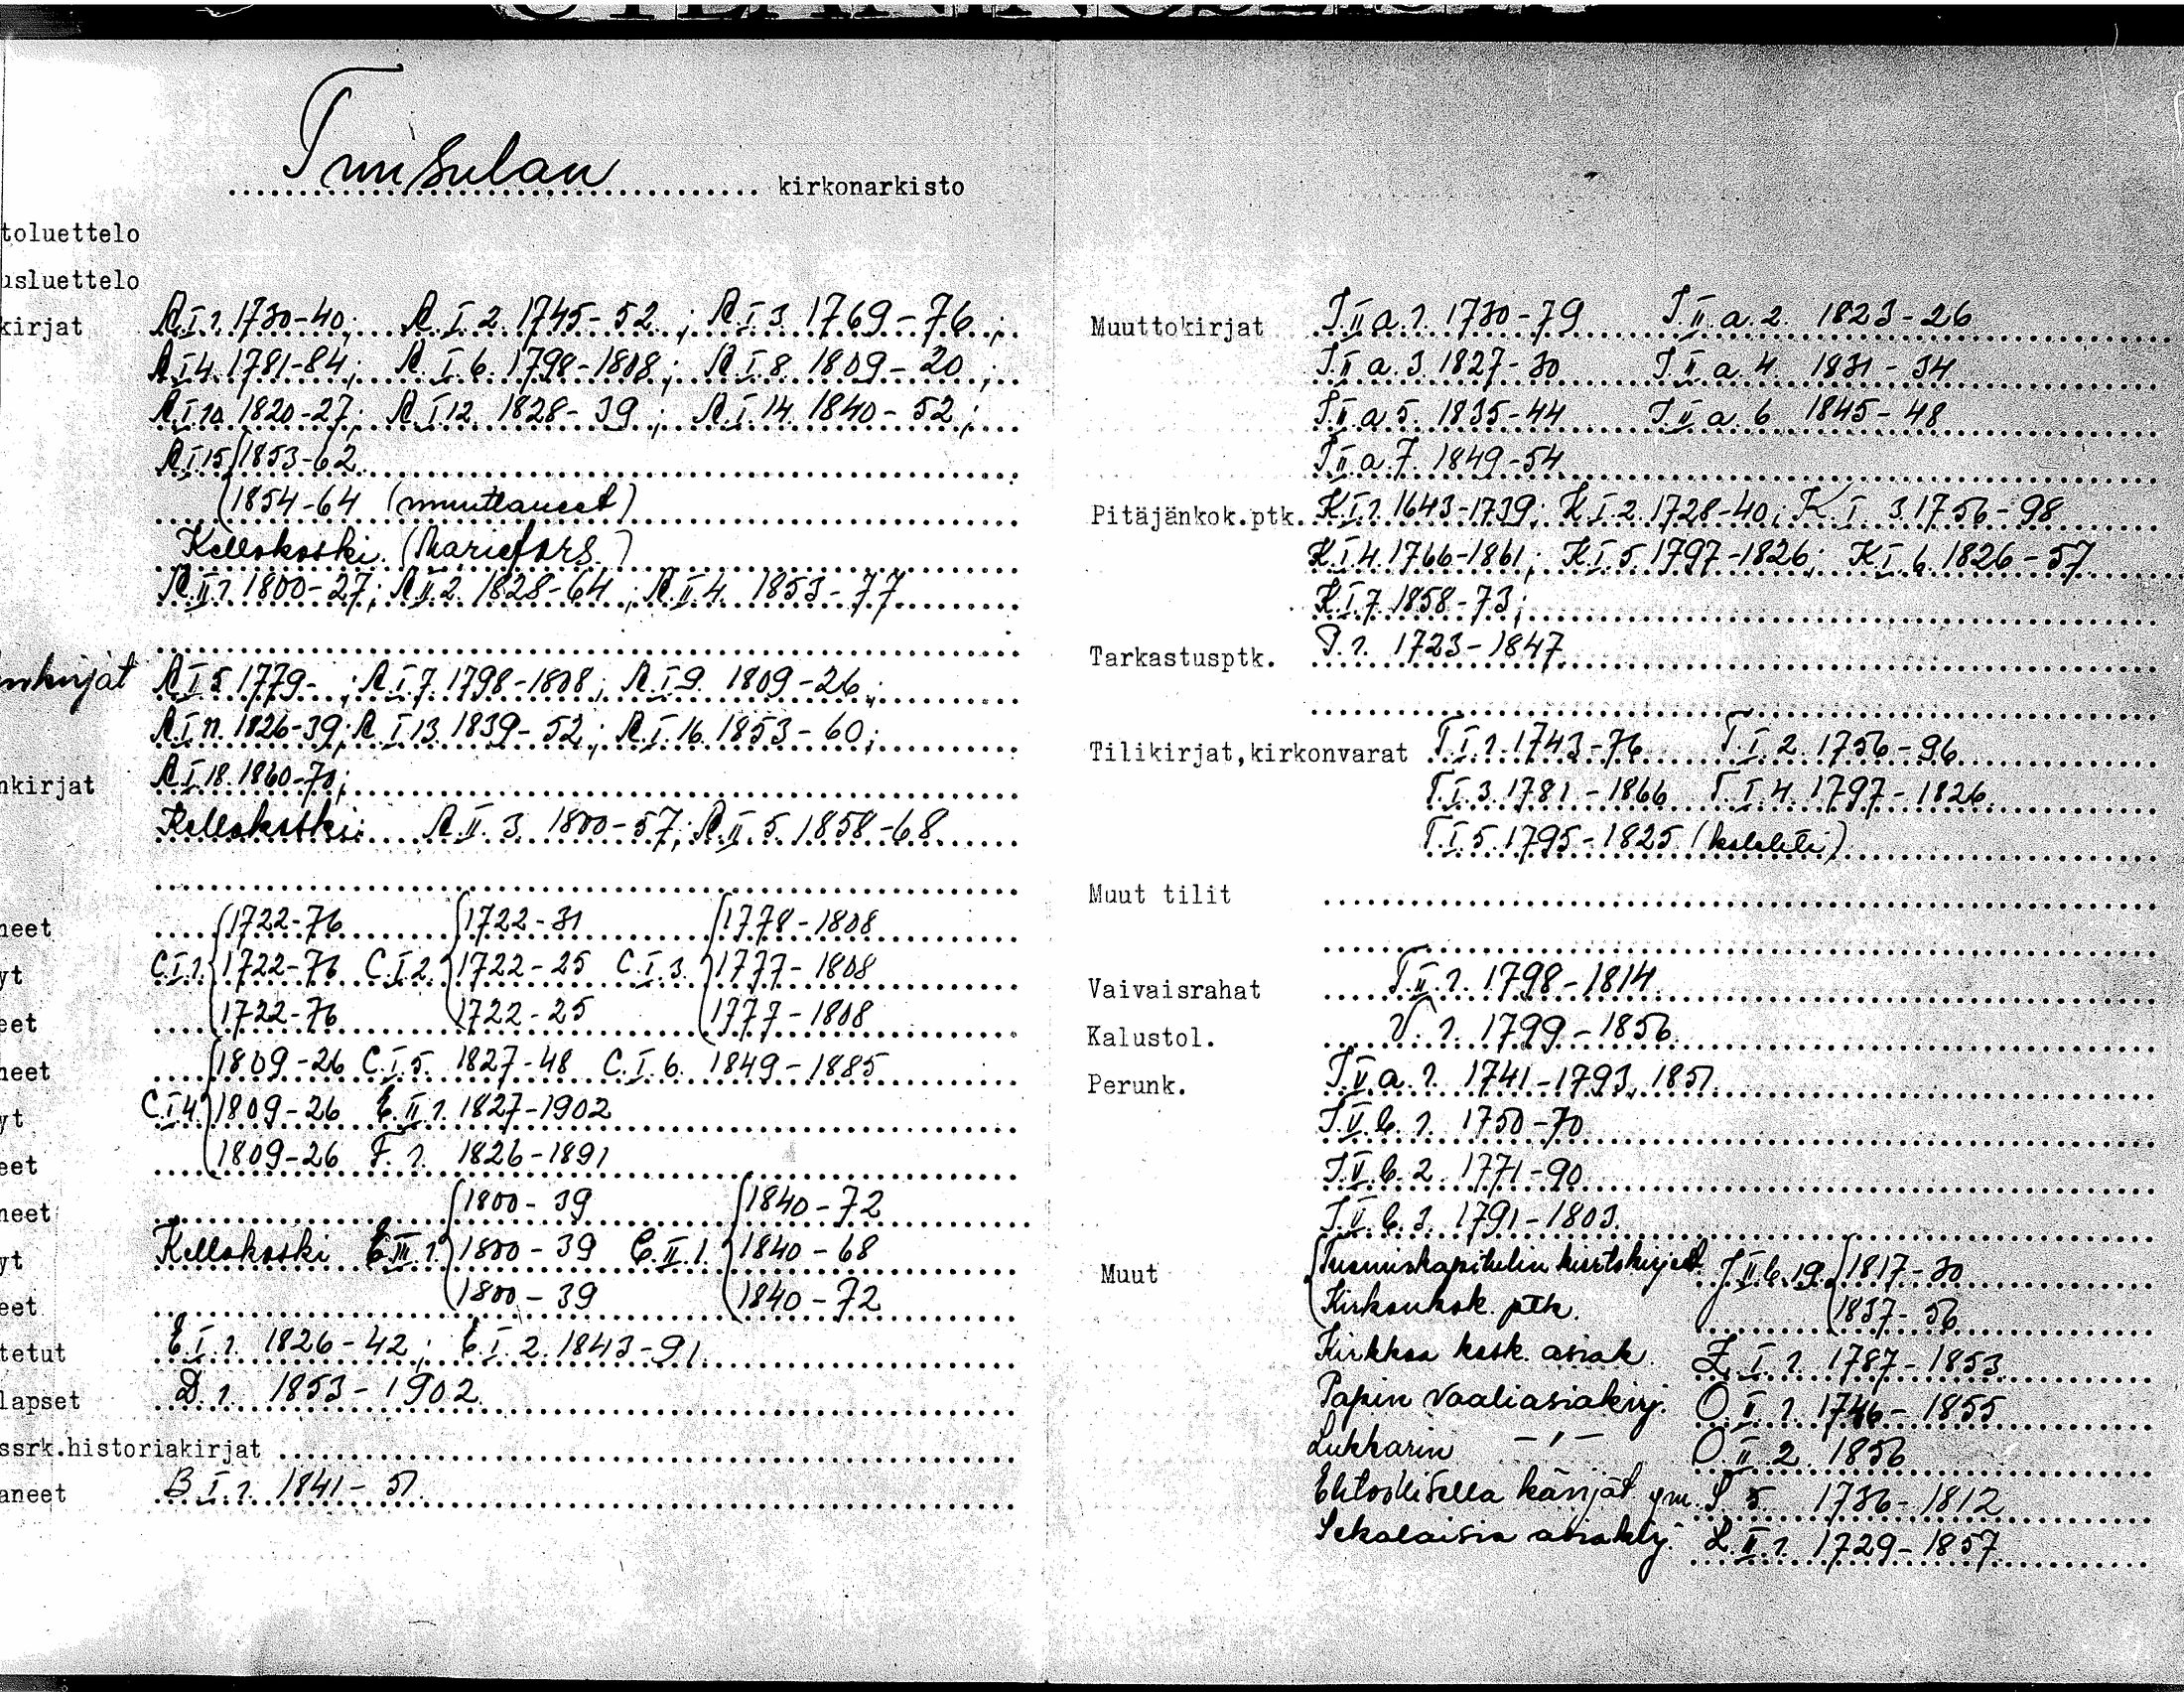 Tuusulan kirkonarkisto
toluettelo
usluettelo
kirjat A.I.1. 1730-40; A.I.2. 1745-52; A.I.3. 1769-76;
A.I.4. 1781-84; A.I.6. 1798-1808; A.I.8. 1809-20;
A.I.10. 1820-27; A.I.12. 1828-39; A.I.14. 1840-52;
A.I.15 1853-62
1854-64 (muuttaneet)
Kellokoski (Mariefors)
A.II.1. 1800-27; A.II.2. 1828-64; A.II.4. 1853-77
nkirjat A.I.5. 1779- ; A.I.7. 1798-1808; A.I.9. 1809-26;
A.I.11. 1826-39; A.I.13. 1839-52; A.I.16. 1853-60;
nkirjat A.I.18. 1860-70;
Kellokoski: A.II.3. 1800-57; A.II.5. 1858-68
neet 1722-76 1722-31 1778-1808
yt C.I.1. 1722-76 C.I.2. 1722-25 C.I.3. 1777-1808
eet 1722-76 1722-25 1777-1808
neet 1809-26 C.I.5. 1827-48 C.I.6. 1849-1885
yt C.I.4. 1809-26 E.II.1. 1827-1902
eet 1809-26 F.1. 1826-1891
neet 1800-39 1840-72
yt Kellokoski C.III.1. 1800-39 C.II.1. 1840-68
eet 1800-39 1840-72
tetut E.I.1. 1826-42; E.I.2. 1843-91
lapset D.1. 1853-1902
ssrk.historiakirjat
aneet B.I.1. 1841-51
Muuttokirjat J.II.a.1. 1730-79 J.II.a.2. 1823-26
J.II.a.3. 1827-30 J.II.a.4. 1831-34
J.II.a.5. 1835-44 J.II.a.6. 1845-48
J.II.a.7. 1849-54
Pitäjänkok.ptk. K.I.1. 1643-1739; K.I.2. 1728-40; K.I.3. 1756-98
K.I.4. 1766-1861; K.I.5. 1797-1826; K.I.6. 1826-57
K.I.7. 1858-73;
Tarkastusptk. P.1. 1723-1847
Tilikirjat,kirkonvarat T.I.1. 1743-76 T.I.2. 1756-96
T.I.3. 1781-1866 T.I.4. 1797-1826
T.I.5. 1795-1825 (kolehti)
Muut tilit
Vaivaisrahat T.II.1. 1798-1814
Kalustol. V.1. 1799-1856
Perunk. J.V.a.1. 1741-1793, 1851
J.V.b.1. 1750-70
J.V.b.2. 1771-90
J.V.b.3. 1791-1803
Muut Tuomiokapitulin kiertokirjeet J.II.b.19. 1817-30
Kirkonkok. ptk. 1837-56
Kirkkoa kosk. asiak. Z.I.1. 1787-1853
Papin vaaliasiakirj. O.II.1. 1746-1855
Lukkarin -,,- O.II.2. 1856
Ehtoollisella kävijät ym. S.5. 1736-1812
Sekalaisia asiakirj. L.II.1. 1729-1857